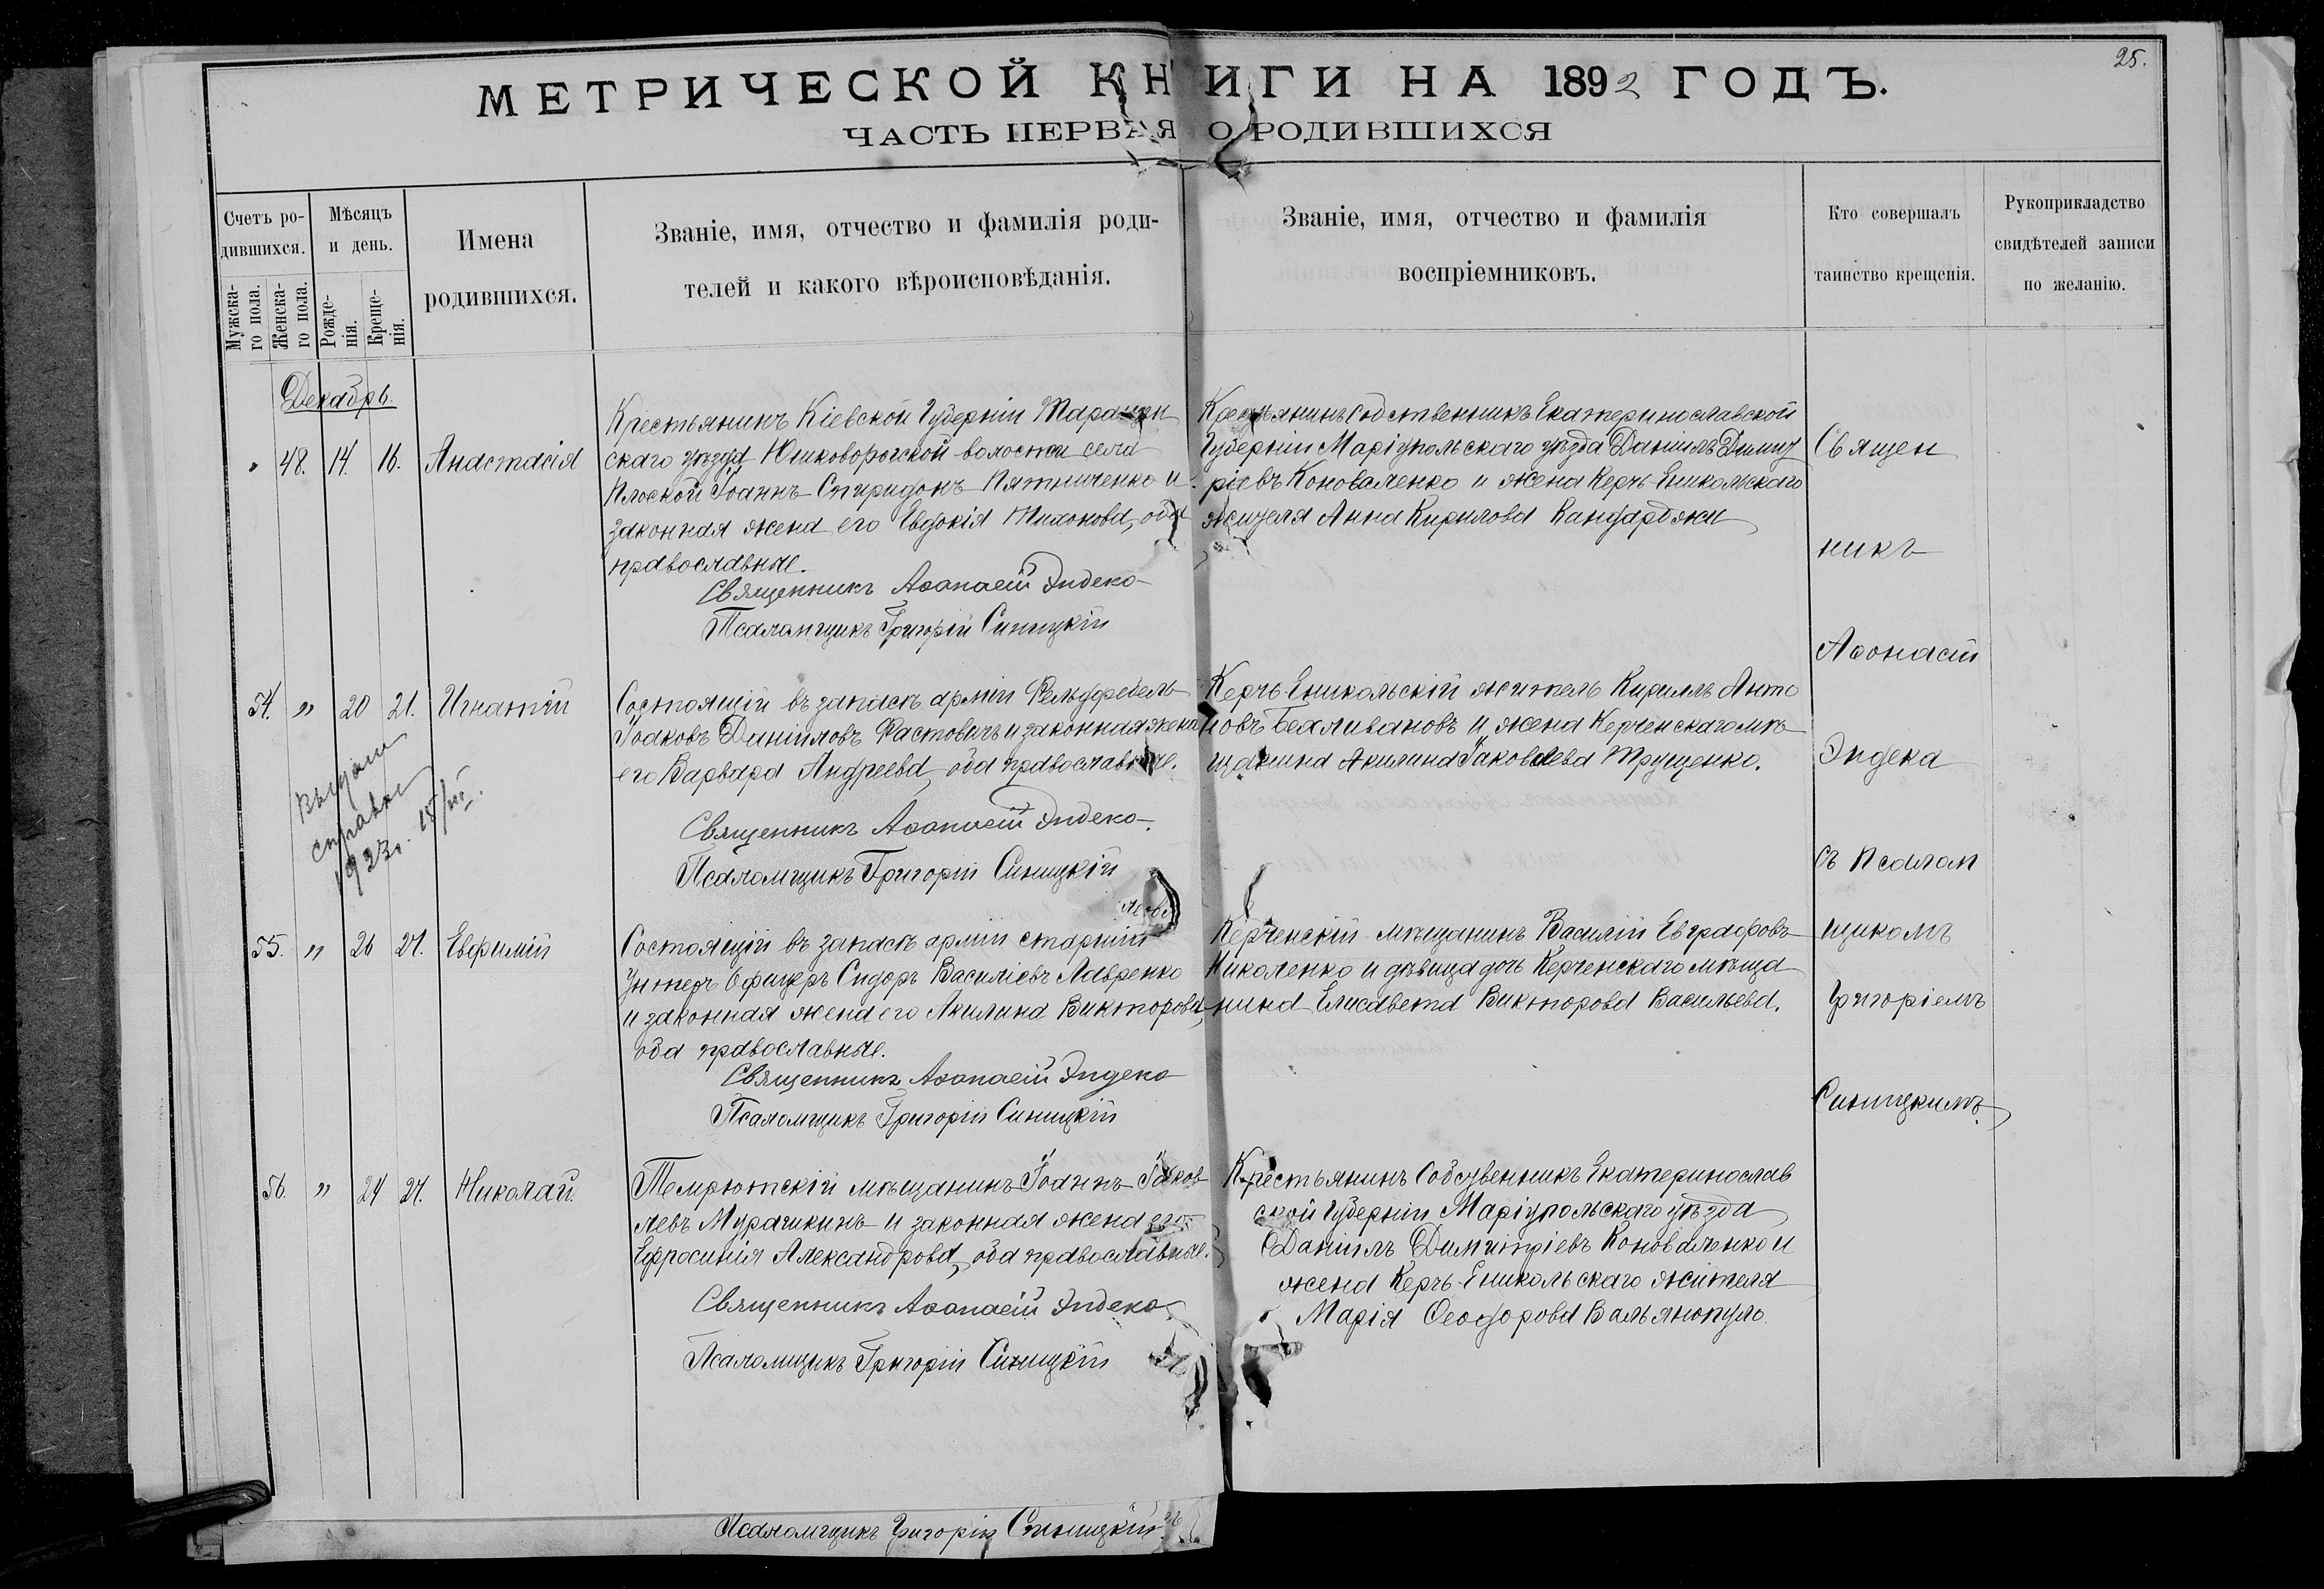 25.
МЕТРИЧЕСКОЙ КНИГИ НА 1892 ГОДЪ.
ЧАСТЬ ПЕРВАЯ О РОДИВШИХСЯ
Счетъ ро-
дившихся.
Мужска-
го пола.
Женска-
го пола.
Мѣсяцъ
и день.
Рожде-
нія.
Креще-
нія.
Имена
родившихся.
Званіе, имя, отчество и фамилія роди-
телей и какого вѣроисповѣданія.
Званіе, имя, отчество и фамилія
воспріемниковъ.
Кто совершалъ
таинство крещенія.
Рукоприкладство
свидѣтелей записи
по желанію.
Декабрь.
" 48. 14. 16. Анастасія
Крестьянинъ Кіевской Губерніи Таращан
скаго уѣзда Юшковорогской волости села
Плоской Іоаннъ Спиридонъ Пятниченко и
законная жена его Евдокія Тихонова, оба
православные.
Священникъ Аѳанасій Эндека
Псаломщикъ Григорій Синицкій
Крестьянинъ Собственникъ Екатеринославской
Губерніи Маріупольскаго уѣзда Даніилъ Димит
ріевъ Коноваленко и жена Керчь-Еникольскаго
жителя Анна Кирилова
54. " 20 21. Игнатій
Состоящій въ запасѣ арміи Фельдфебель
Іаковъ Даніиловъ Растовичъ и законная жена
его Варвара Андреева, оба православные.
Священникъ Аѳанасій Эндека.
Псаломщикъ Григорій Синицкій
Керчь-Еникольскій житель Кириллъ Анто
новъ и жена Керченскаго мѣ
щанина Акилина Іаковлева Трущенко.
Выдали
справки
1923г. 15/III.
55. " 26 27. Евфимій
Состоящій въ запасѣ арміи старшій
Унтеръ Офицеръ Сидоръ Василіевъ Лавренко
и законная жена его Акилина Викторова,
оба православные.
Священникъ Аѳанасій Эндека
Псаломщикъ Григорій Синицкій
Керченскій мѣщанинъ Василій Евграфовъ
Николенко и дѣвица дочь Керченскаго мѣща
нина Елисавета Викторова Васильева.
56. " 24 27. Николай.
Темрютскій мѣщанинъ Іоаннъ Іаков
левъ Мурашкинъ и законная жена его
Ефросинія Александрова, оба православные.
Священникъ Аѳанасій Эндека
Псаломщикъ Григорій Синицкій
Крестьянинъ Собственникъ Екатеринослав
ской Губерніи Маріупольскаго уѣзда
Даніилъ Димитріевъ Коноваленко и
жена Керчь-Еникольскаго жителя
Марія Ѳеодорова Вальянопуло.
Священ
никъ
Аѳонасій
Эндека
съ Псалом
щикомъ
Григоріемъ
Синицкимъ.
Псаломщикъ Григорій Синицкій